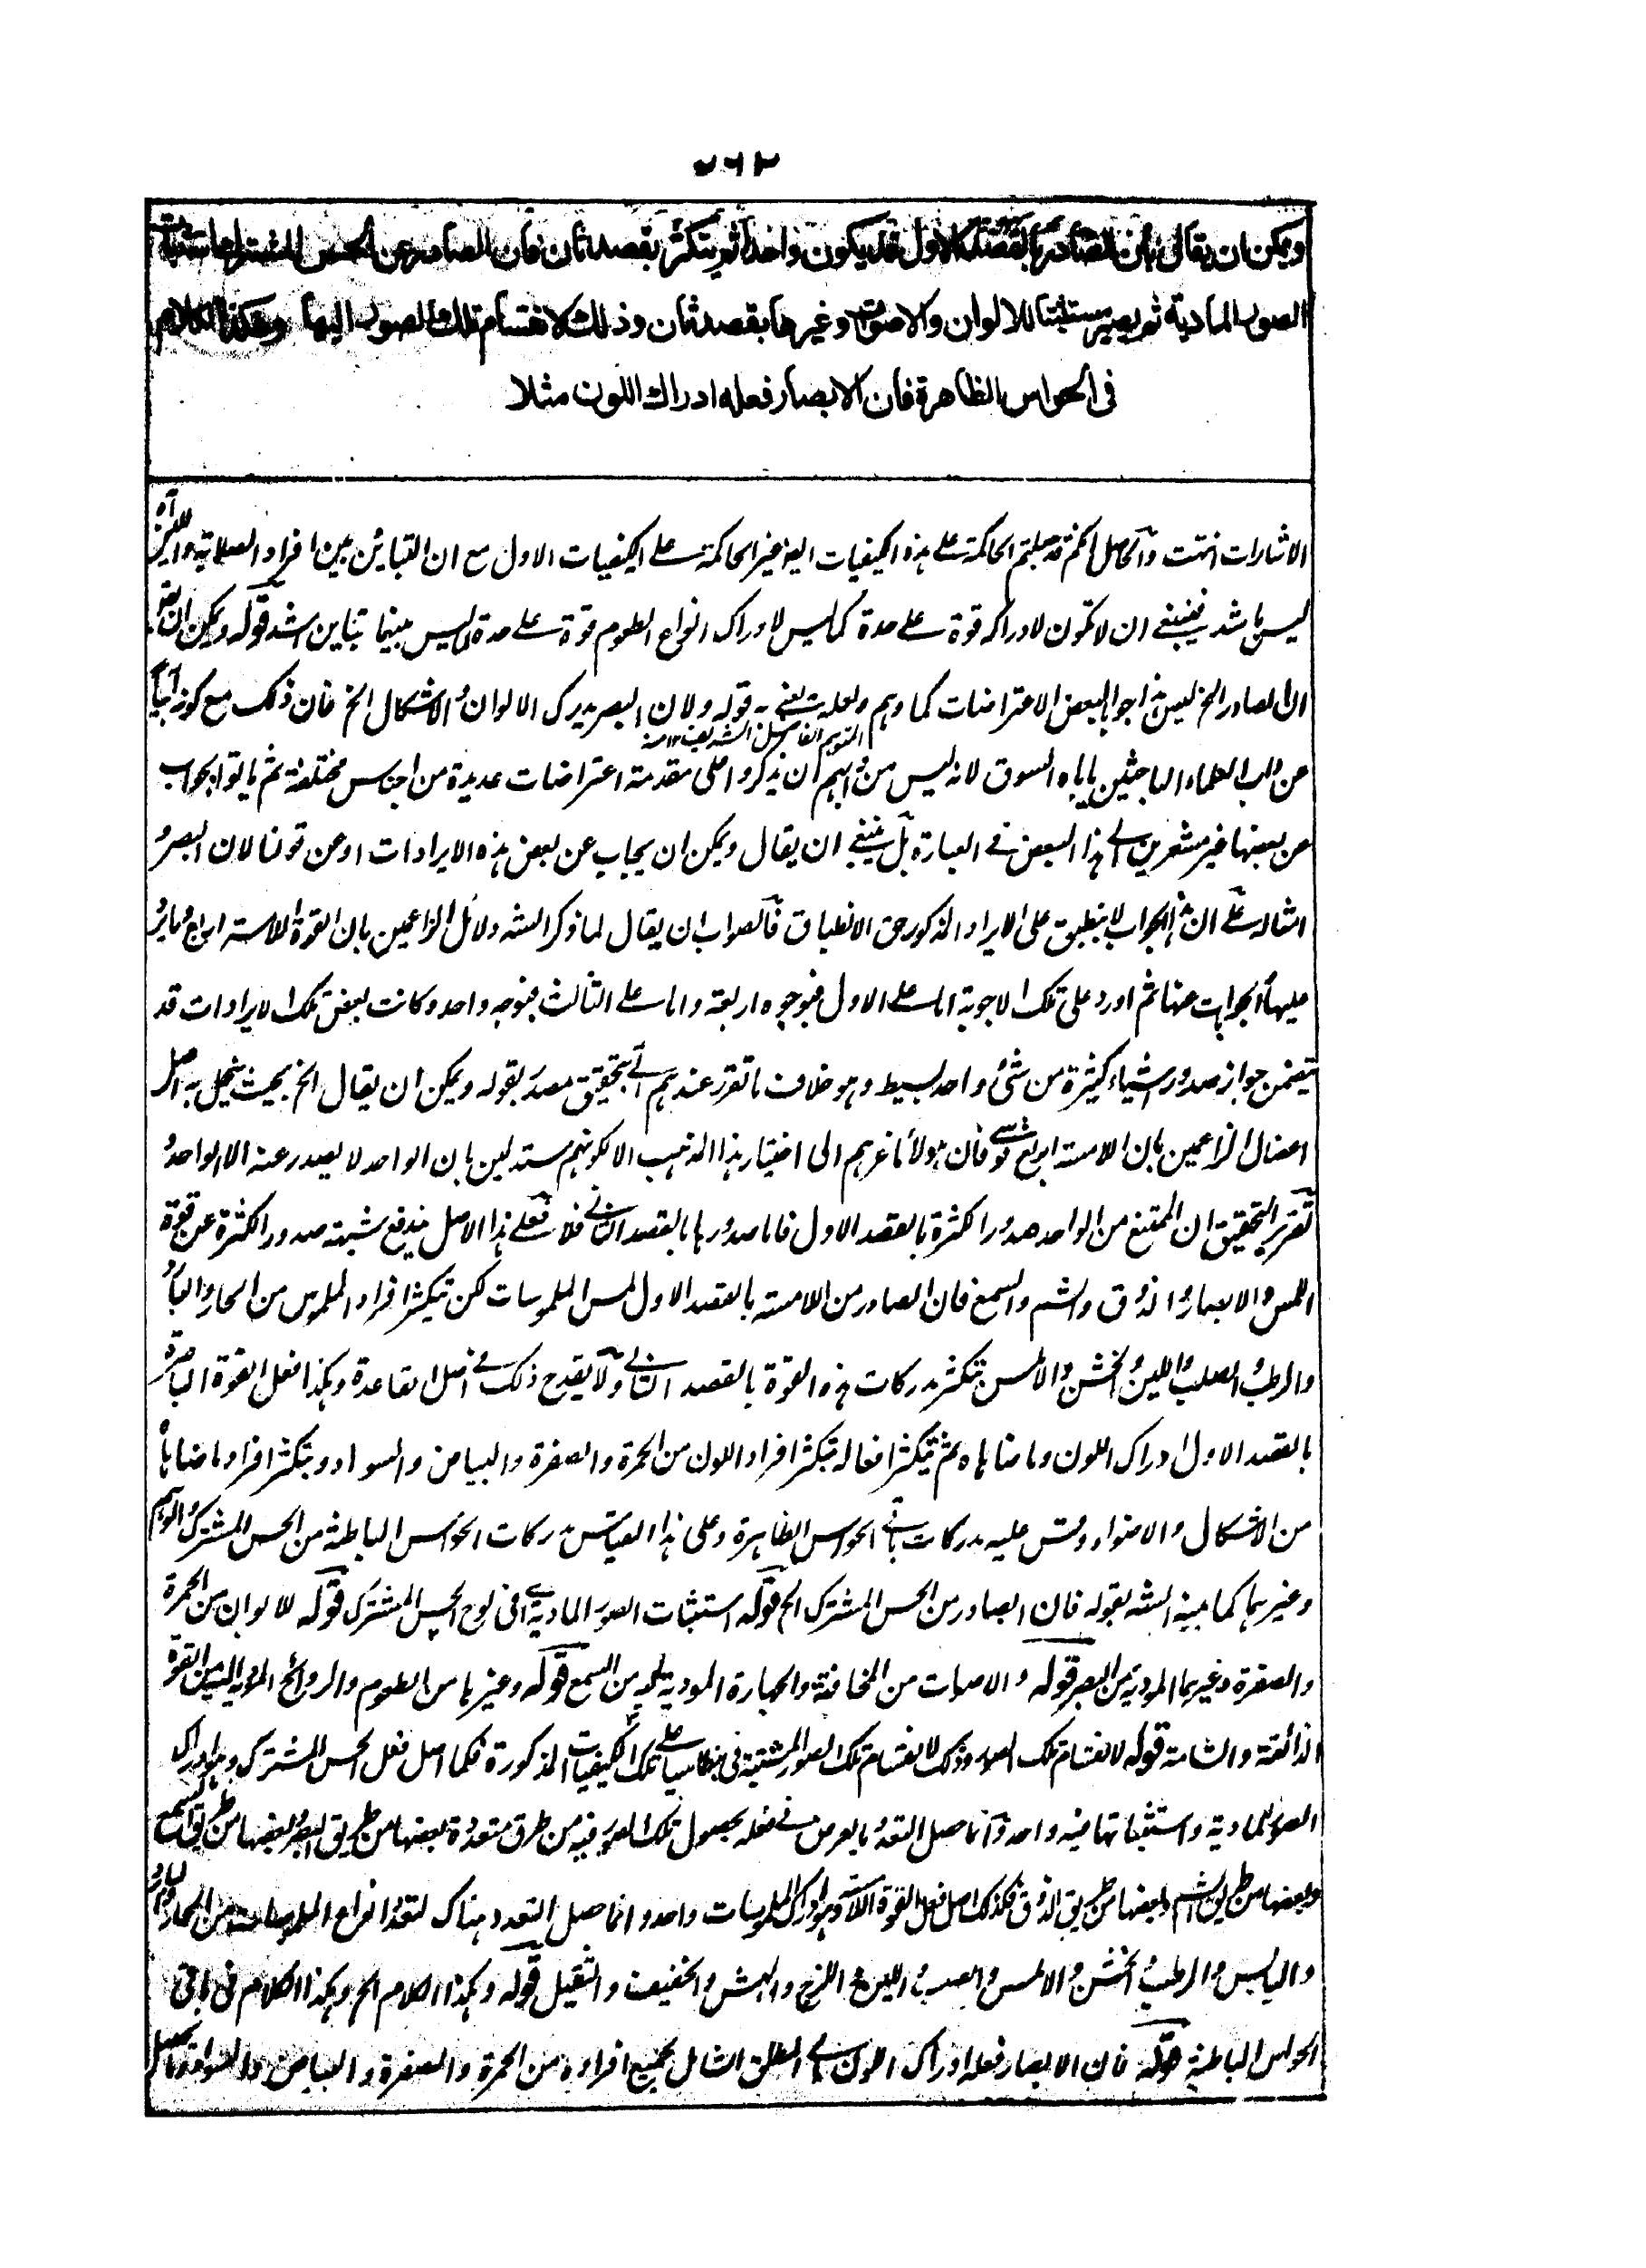 ٥٦٢
ويمكن ان يقال بان الصادر بالقصد الاول قد يكون واحدا ثم يتكثر بقصد ثان فان الصادر عن الحس المشترك استثبات
الصور المادية ثم يصير مستثبتا للالوان والاصوات وغيرها بقصد ثان وذلك لانقسام تلك الصور اليها وهكذا الكلام
فى الحواس الظاهرة فان الابصار فعله ادراك اللون مثلا
الاشارات انتهت والحاصل انكم قد جعلتم الحاكمة على هذه الكيفيات اليه غير الحاكمة على الكيفيات الاول مع ان التبائن بين افراد الصلابة واللين
ليس باشد فينبغى ان لا تكون لادراكه قوة على حدة كما ليس لادراك انواع الطعوم قوة على حدة لما ليس بينهما تباين اشد قوله ويمكن ان يقال
ان الصادر الخ ليس هذا جوابا لبعض الاعتراضات كما وهم ولعله يعنى به قوله ولان البصر يدرك الالوان والاشكال الخ فان ذلك مع كونه
عن داب العلماء الباحثين ياباه السوق لانه ليس من دابهم ان يذكروا على مقدمة اعتراضات عديدة من اجناس مختلفة ثم ياتوا بجواب
عن بعضها غير مشعرين الى هذا البعض فى العبارة بل ينبغى ان يقال ويمكن ان يجاب عن بعض هذه الايرادات او عن قولنا لان البصر
امثاله على ان هذا الجواب لا ينطبق على الايراد المذكور حق الانطباق فالصواب ان يقال لما ذكر الشه دلائل الزاعمين بان القوة اللامسة اربع
عليها الجوابات عنها ثم اورد على تلك الاجوبة اما على الاول فبوجوه اربعة واما على الثالث فبوجه واحد وكانت بعض تلك الايرادات قد
تتضمن جواز صدور اشياء كثيرة من شئ واحد بسيط وهو خلاف ما تقرر عندهم اتى بتحقيق مصدر بقوله ويمكن ان يقال الخ بحيث ينحل به اصل
اعضال الزاعمين بان اللامسة اربع قوى فان هولاء ما غرهم الى اختيار هذا المذهب الا كونهم مستدلين بان الواحد لا يصدر عنه الا الواحد
تقرير التحقيق ان الممتنع من الواحد صدور الكثرة بالقصد الاول فاما صدورها بالقصد الثانى فلا فعلى هذا الاصل يندفع شبهة صدور الكثرة عن قوة
اللمس والابصار والذوق والشم والسمع فان الصادر من اللامسة بالقصد الاول لمس الملموسات لكن تتكثر افراد الملموس من الحار والبارد
والرطب والصلب واللين والخشن والاملس تتكثر مدركات هذه القوة بالقصد الثانى ولا يقدح ذلك فى اصل القاعدة وهكذا فعل القوة الباصرة
بالقصد الاول ادراك اللون وما ضاهاه ثم تتكثر افعاله بتكثر افراد اللون من الحمرة والصفرة والبياض والسواد وبتكثر افراد ما ضاهاه
من الاشكال والاضواء وقس عليه مدركات باقى الحواس الظاهرة وعلى هذا القياس مدركات الحواس الباطنة من الحس المشترك والوهم
وغيرهما كما بينه الشه بقوله فان الصادر من الحس المشترك الخ قوله استثبات الصور المادية اى فى لوح الحس المشترك قوله للالوان من الحمرة
والصفرة وغيرهما المودية من البصر قوله والاصوات من المخافتة والجهارة المودية اليه من السمع قوله وغيرها من الطعوم والروائح المودية اليه من القوة
الذائقة والشامة قوله لانقسام تلك الصور وذلك لانقسام تلك الصور المثبتة فى بنطاسيا على تلك الكيفيات المذكورة فكما اصل فعل الحس المشترك وهو ادراك
الصور المادية واستثباتها فيه واحد وانما حصل التعدد بالعرض فى فعله بحصول تلك الصور فيه من طرق متعددة بعضها من طريق البصر وبعضها من طريق السمع
وبعضها من طريق الشم وبعضها من طريق الذوق فكذلك اصل فعل القوة اللامسة وهو ادراك الملموسات واحد وانما حصل التعدد هناك لتعدد انواع الملموسات من الحار والبارد
واليابس والرطب والخشن والاملس والصلب واللين واللزج والهش والخفيف والثقيل قوله وهكذا الكلام الخ وهكذا الكلام فى باقى
الحواس الباطنة قوله فان الابصار فعله ادراك اللون اى المطلق الشامل لجميع افراده من الحمرة والصفرة والبياض والسواد